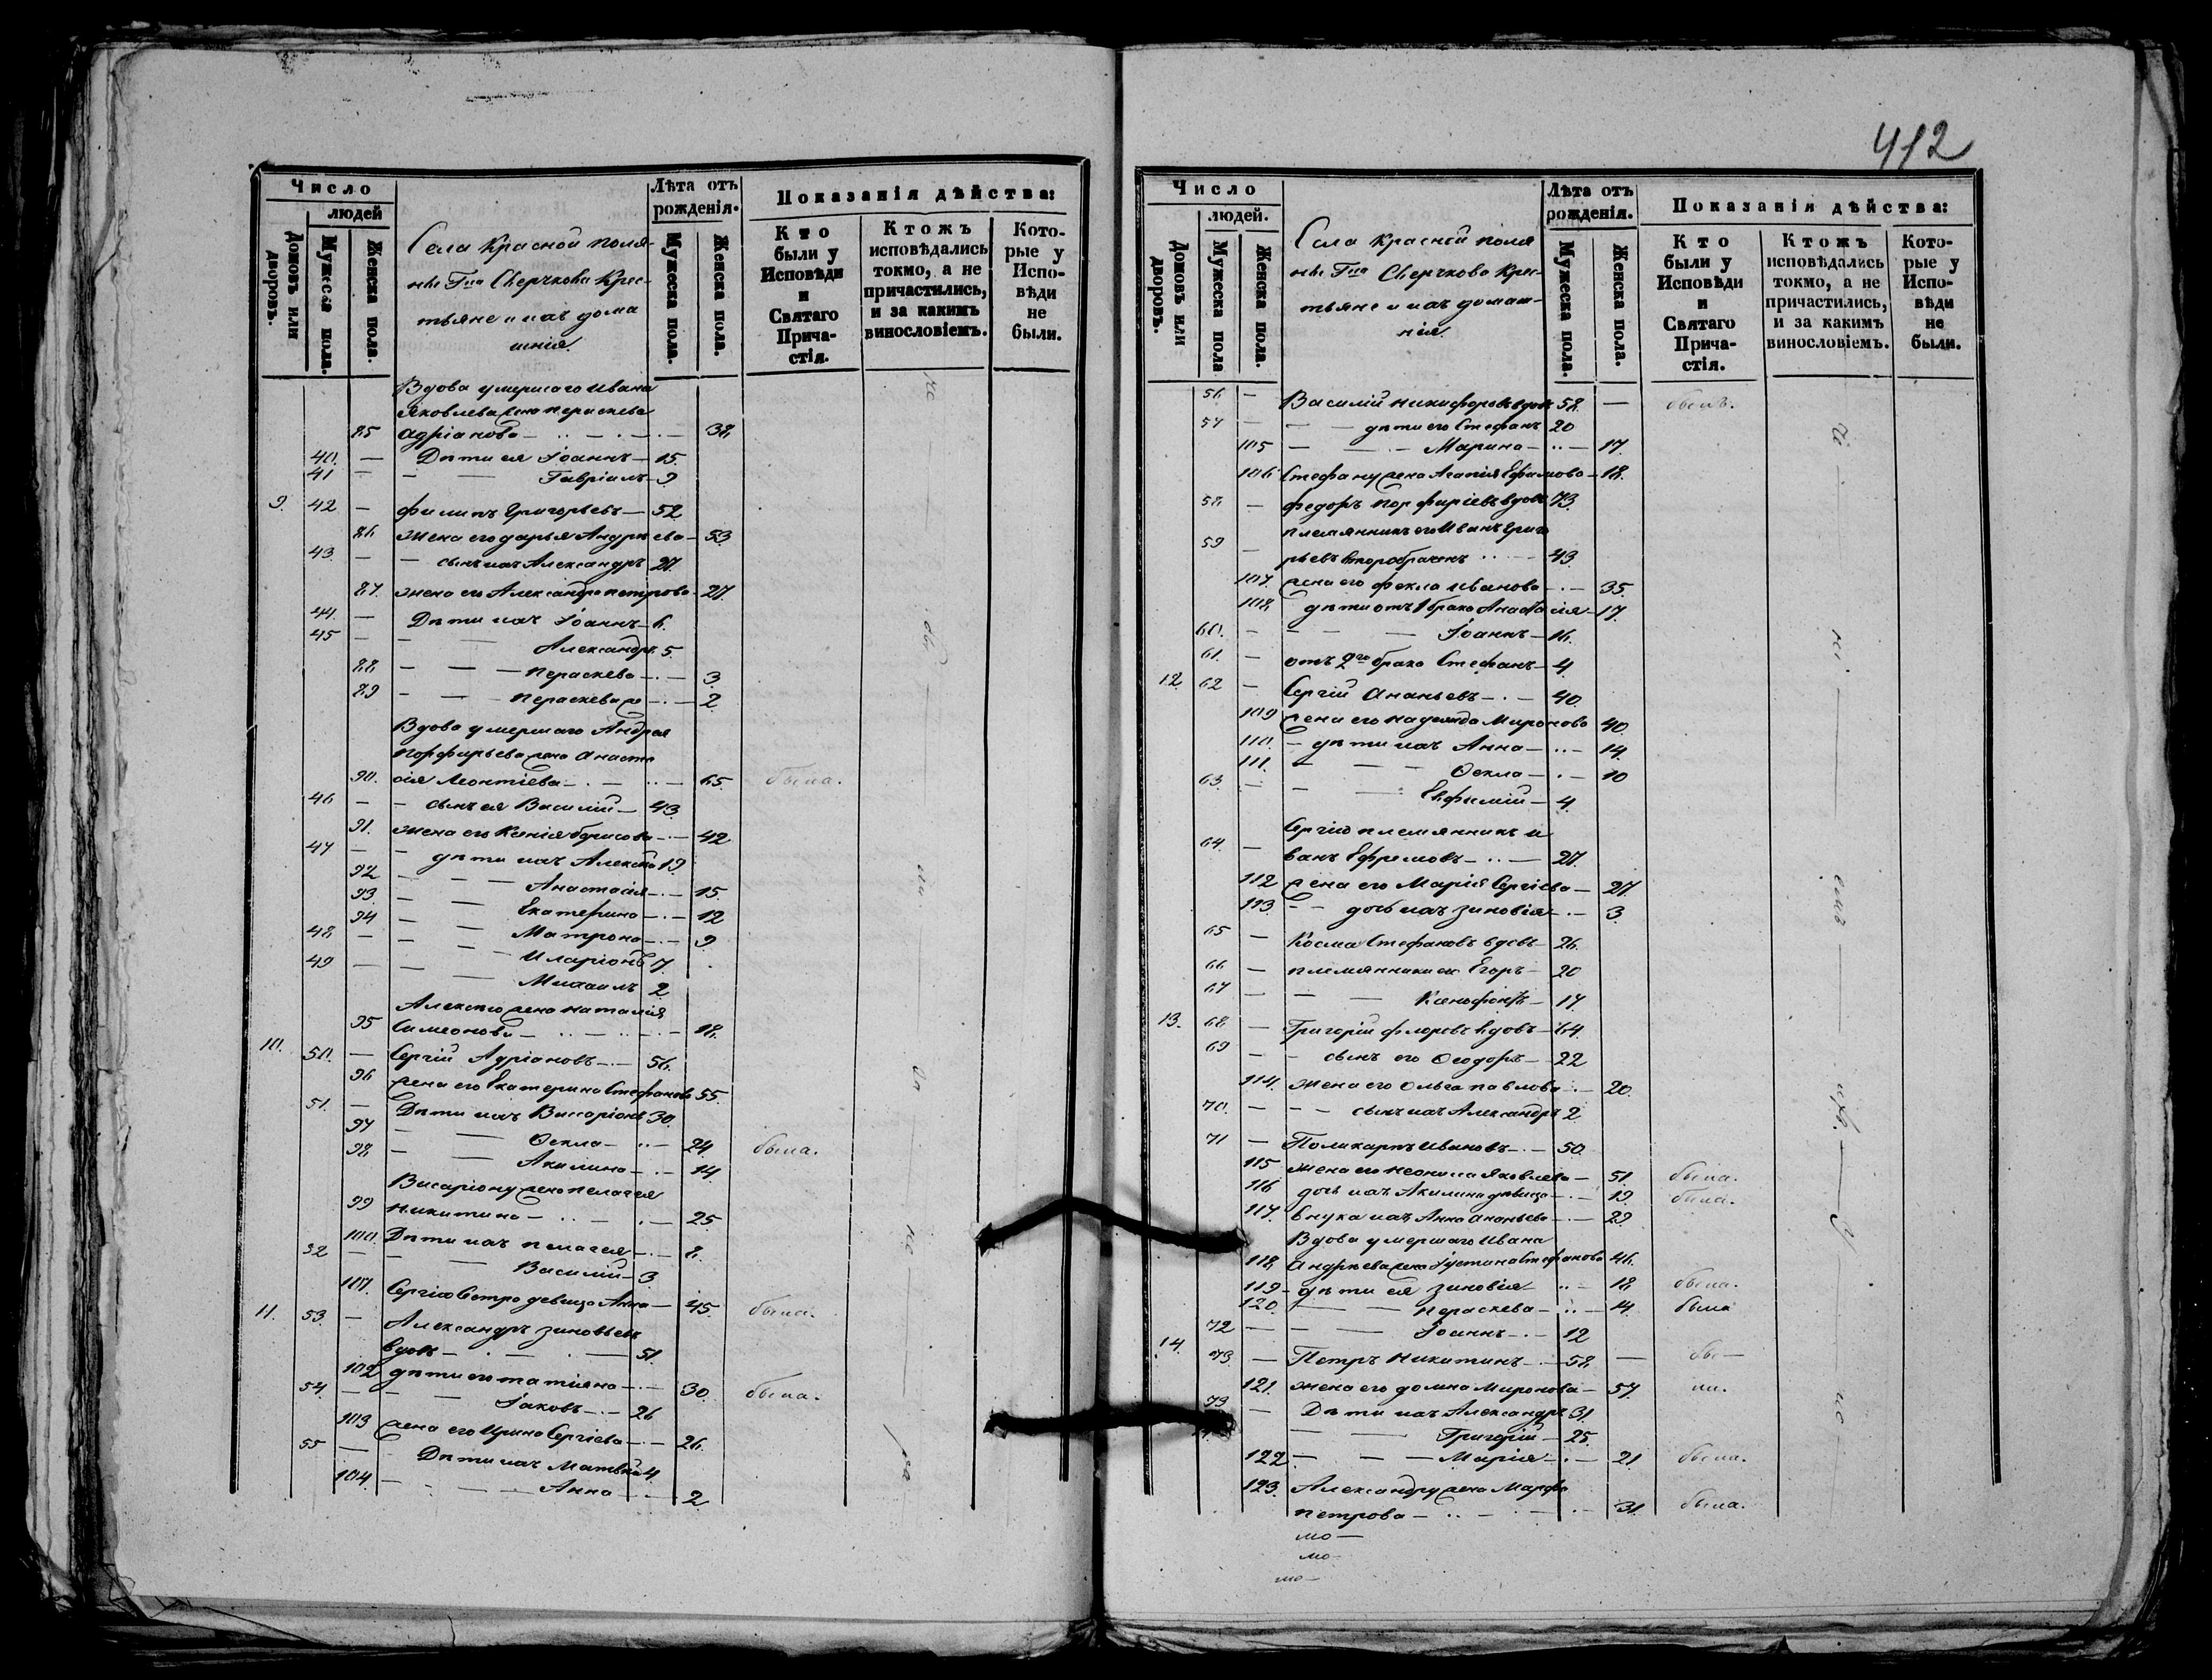 Число
людей
Домовъ или дворовъ.
Мужеска пола.
Женска пола.
Села Красной поля-
нѣ Гна Сверчкова Крес-
тьяне и ихъ дома
шнія.
Лѣта отъ
рожденія.
Мужеска пола.
Женска пола.
Показанія дѣйства:
Кто были у Исповѣди и Святаго Прича-стія.
Ктожъ исповѣдались токмо, а не причастились, и за какимъ винословіемъ.
Кото-рые у Испо-вѣди не были.
Вдова умершаго Ивана
Яковлева жена параскева
85 Адріанова — 38
40. — Дѣти ея Іоаннъ — 15.
41 — Гавріилъ — 9
9. 42 — филипъ Григорьевъ — 52
86 жена его дарья Андрѣева — 53
43 — сынъ ихъ Александръ 27.
87. жена его Александра петрова — 27
44. — Дѣти ихъ Іоаннъ — 6.
45 — Александръ 5
88 — параскева — 3
89 — параскева же — 2
Вдова умершаго Андрея
порфирьева жена Анаста
90. сія Леонтіева — 65 была.
46 — сынъ ея Василій — 43
91. жена его Ксенія борисова — 42
47 — дѣти ихъ Алексѣй 19
92 — Анастасія — 15
93 — Екатерина — 12
94 — Матрона — 9
48 — Иларіонъ 7
49 — Михаилъ 2
Алексѣю жена наталія
95 Симеонова — 18.
10. 50. — Сергій Адріановъ — 56.
96 жена его Екатерина Стефанова 55
51. — Дѣти ихъ Виссаріонъ 30
97 — Ѳекла — 24 была.
98 — Акилина — 14
Висаріону жена пелагея
99 никитина — 25
100. Дѣти ихъ пелагея — 8.
52 — Василій — 3
101. Сергію Сестра девица Анна — 45 была.
11. 53. — Александръ зиновьевъ
вдовъ — 51.
102 дѣти его татіяна — 30. была.
54 — Іаковъ — 26
103 жена его Ирина Сергіева — 26.
55 — Дѣти ихъ Матвѣй 4
104. — Анна — 2
412
Число
людей.
Домовъ или дворовъ.
Мужеска пола
Женска пола.
Села Красной поля
нѣ Гна Сверчкова Крес-
тьяне и ихъ домаш-
нія.
Лѣта отъ
рожденія.
Мужеска пола.
Женска пола.
Показанія дѣйства:
Кто были у Исповѣди и Святаго Прича-стія.
Ктожъ исповѣдались токмо, а не причастились, и за какимъ винословіемъ.
Кото-рые у Испо-вѣди не были.
56 — Василій никифоровъ вдовъ 58 — былъ.
57 — дѣти его Стефанъ 20
105 — Марина — 17.
106 Стефану жена Агапія Ефимова — 18.
58 — федоръ порфиріевъ вдовъ 73.
племянникъ его Иванъ Григо
59 — рьевъ второбраченъ — 43
107. жена его фекла иванова — 35.
108. дѣти отъ 1 брака Анастасія — 17.
60. — Іоаннъ — 16.
61. — отъ 2го брака Стефанъ — 4
12. 62 — Сергій Ананьевъ — 40
109 жена его надежда Миронова 40
110. — дѣти ихъ Анна — 14.
111. — Ѳекла — 10
63. — Евфимій — 4.
Сергію племянникъ и
64. — ванъ Ефремовъ — 27.
112 жена его Марія Сергіева — 27
113 — дочь ихъ зиновія — 3
65 — Косма Стефановъ вдовъ — 26.
66 — племянники его Егоръ — 20
67 — Ксенофонтъ — 17
13. 68 — Григорій флоровъ вдовъ — 64
69 — сынъ его Ѳеодоръ — 22
114. жена его Ольга павлова — 20.
70. — сынъ ихъ Александръ 2
71 — Поликарпъ Ивановъ — 50
115 жена его неонила Яковлева — 51. была.
116 дочь ихъ Акилина дѣвица — 19 была.
117. внука ихъ Анна ананьева — 29
Вдова умершаго Ивана
118. Андрѣева жена Іустина Стефанова 46.
119 — дѣти ея зиновія — 18 была.
120. — параскева — 14. была
72 — Іоаннъ — 12
14. 73. — Петръ никитинъ — 58. — бы —
121. жена его домна Миронова — 57 ли.
73 — Дѣти ихъ Александръ 31.
— Григорій — 25.
122 — Марія — 21 была.
123. Александру жена Марфа
петрова — 31. была.